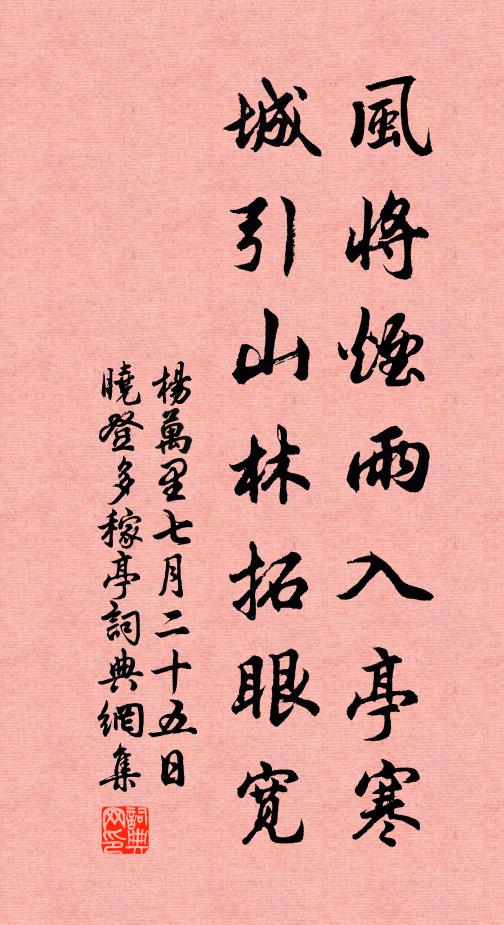 風將煙雨入亭寒
城引山林拓眼寬
楊萬里七月二十五日
曉登多稼亭詞典網集
詞典
网印